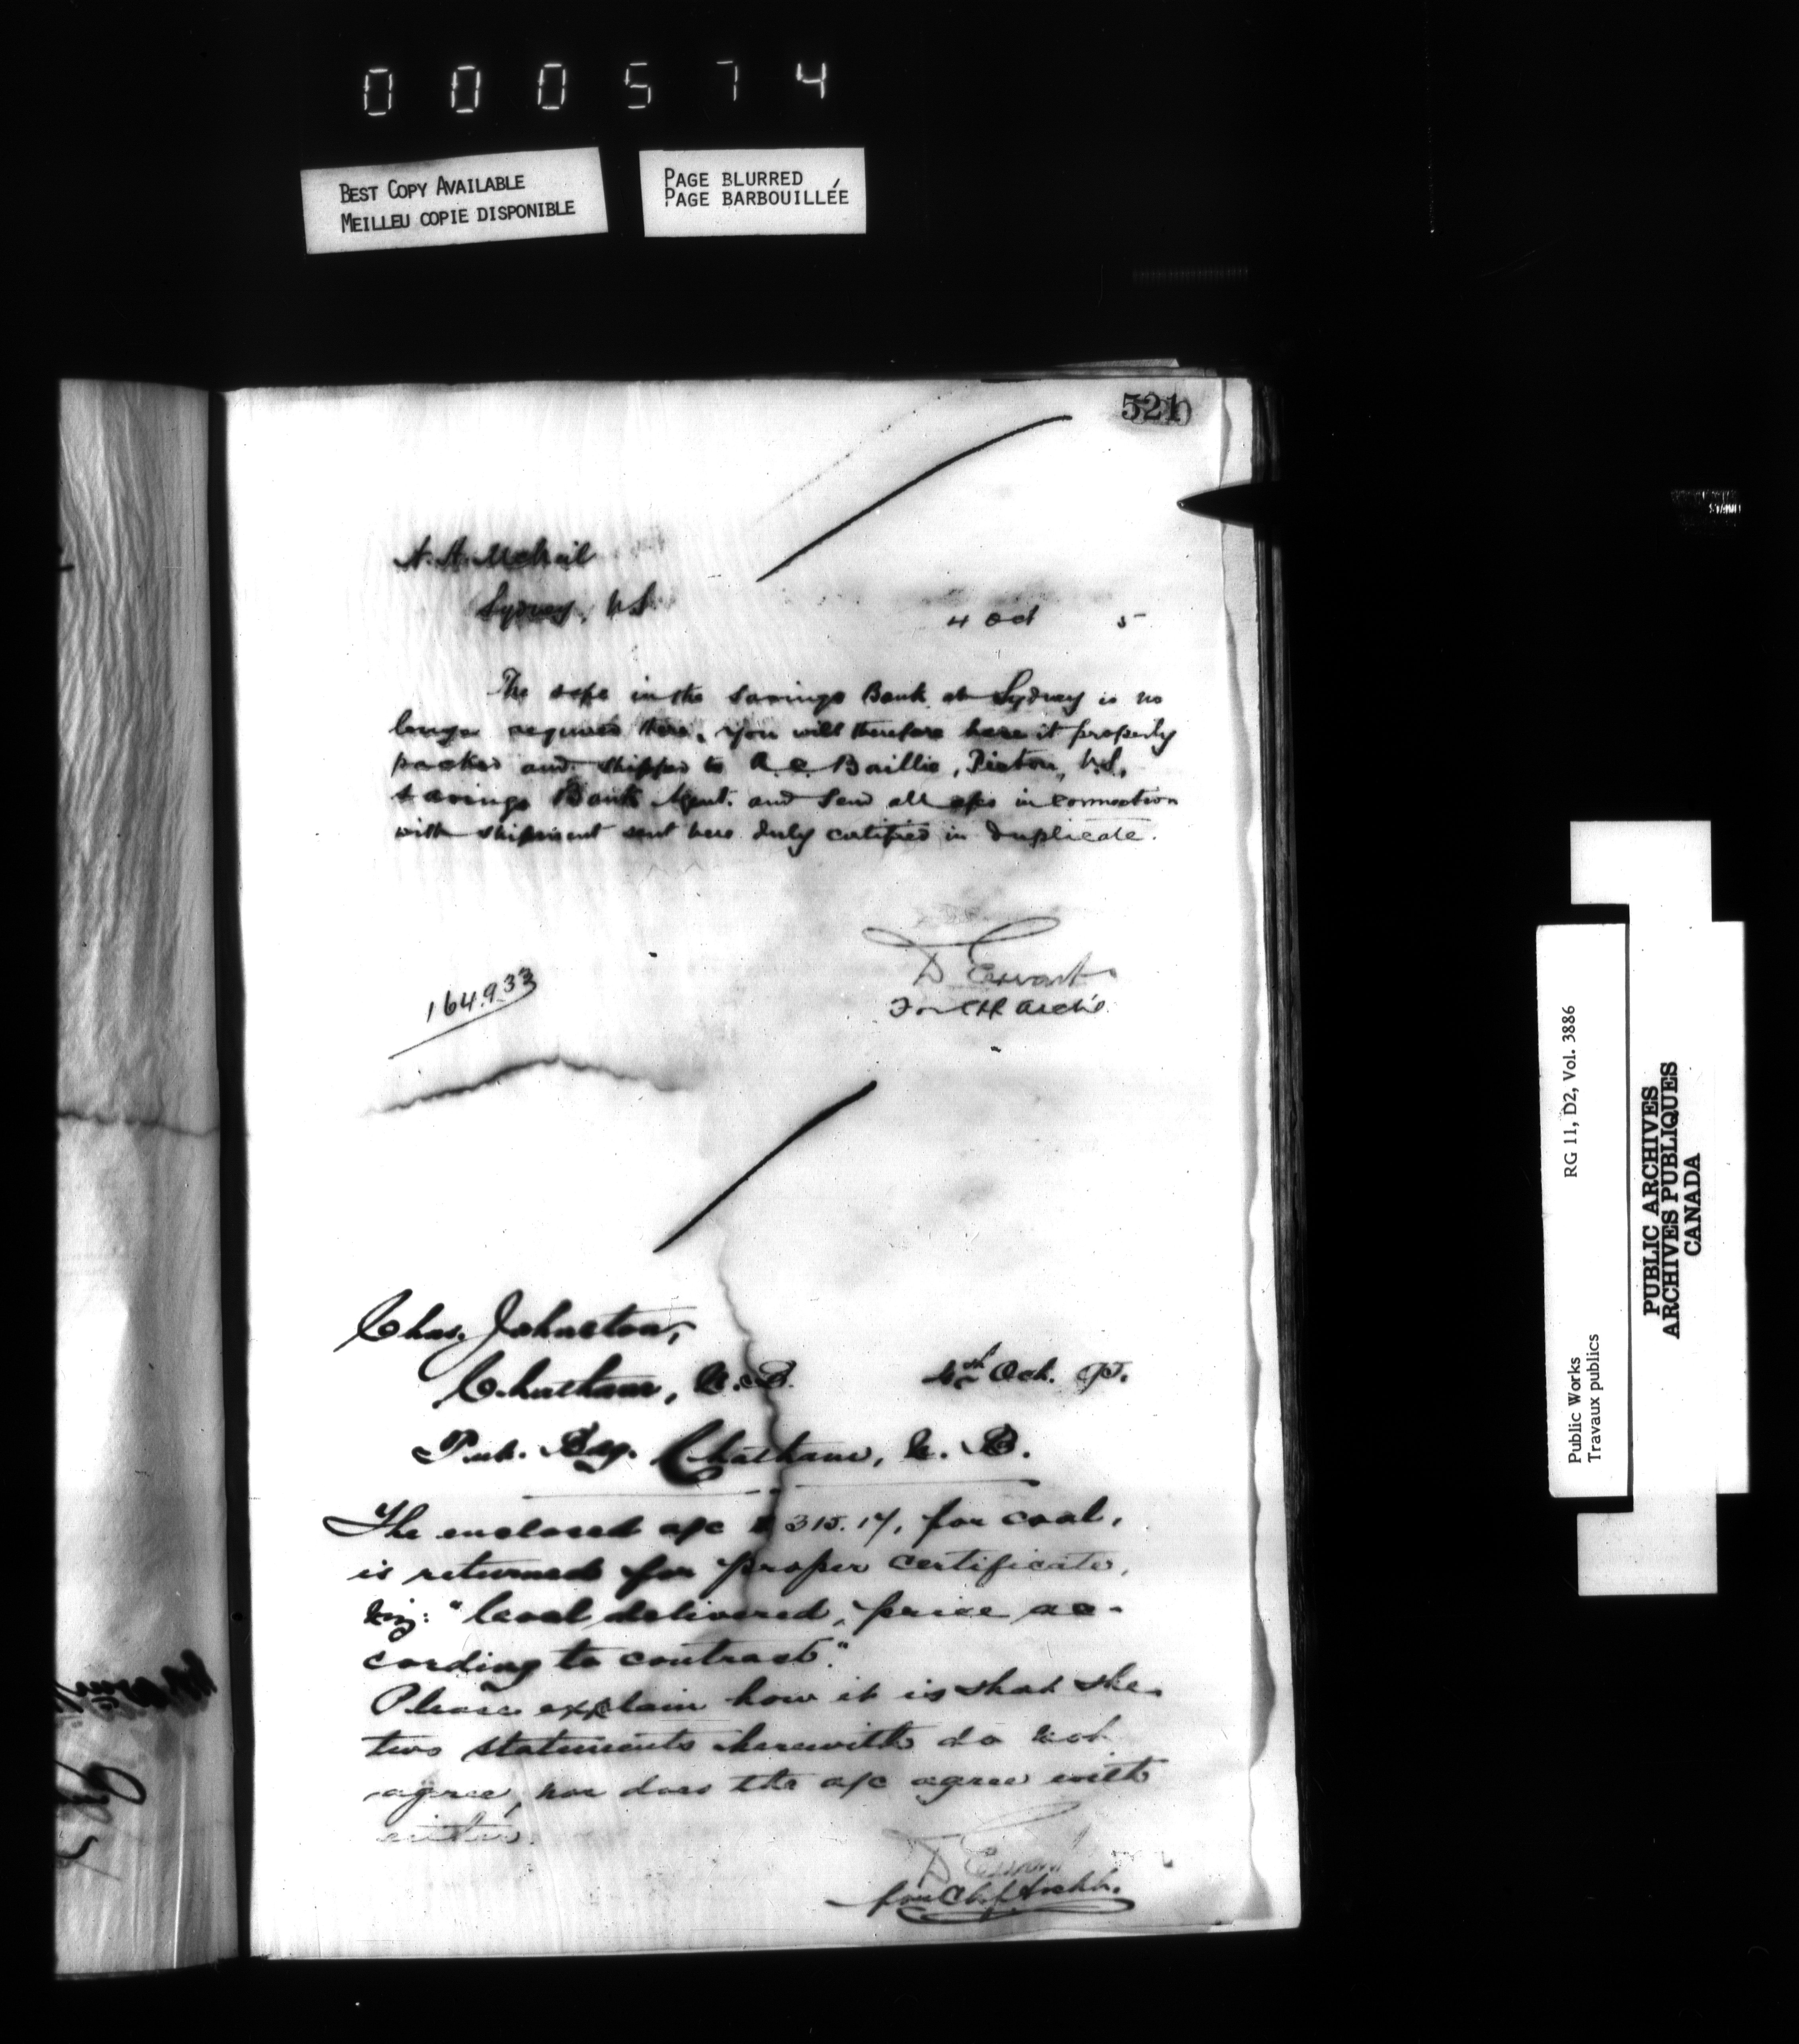 000574
BEST COPY AVAILABLE
MEILLEU COPIE DISPONIBLE
PAGE BLURRED
PAGE BARBOUILLÉE
521
Sydney, N.S.
4 Oct 5
The safe in the Savings Bank at Sydney is no
longer required there. You will therefore have it properly
packed and shipped to A. C. Baillie, Pictou, N.S.,
Savings Bank Agent. and send all a/cs in connection
with shipment sent here duly certified in duplicate.
D Ewart
For Ch Arch't
164933
Chas. Johnston,
Chatham, N.B. 4th Oct. 95.
Pub. Bdg. Chatham, N. B.
The enclosed a/c $315.17, for coal,
is returned for proper certificate,
viz: "Coal delivered, price ac-
cording to contract."
Please explain how it is that the
two statements herewith do not
agree, nor does the a/c agree with
either.
D Ewart
for Chf Archt.
Public Works
Travaux publics
RG 11, D2, Vol. 3886
PUBLIC ARCHIVES
ARCHIVES PUBLIQUES
CANADA